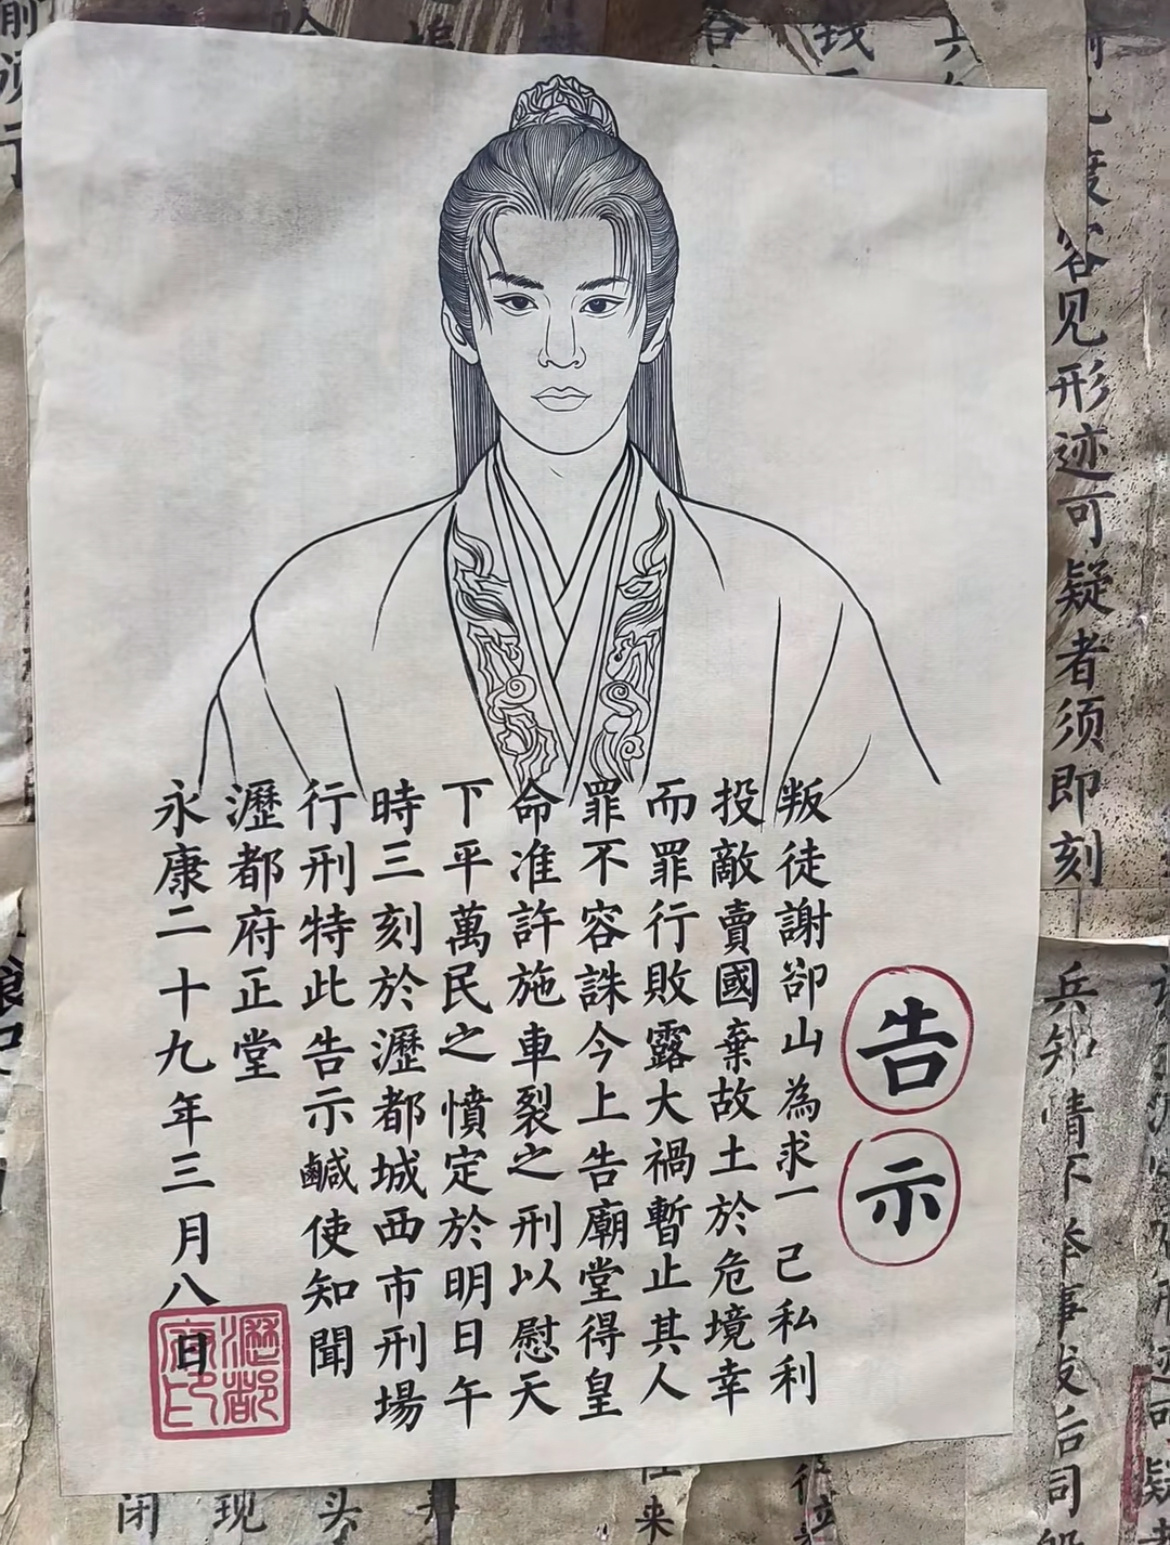 告示
叛徒謝卻山為求一己私利
投敵賣國棄故土於危境幸
而罪行敗露大禍暫止其人
罪不容誅今上告廟堂得皇
命准許施車裂之刑以慰天
下平萬民之憤定於明日午
時三刻於瀝都城西市刑場
行刑特此告示鹹使知聞
瀝都府正堂
永康二十九年三月八日
瀝都府印
容见形迹可疑者须即刻
兵知情不举事发后司
钱
闭
现
头
来